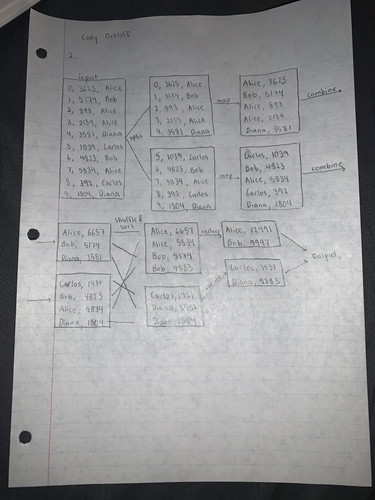 Cody
2.
input
0, 3625, Alice
1, 5174, Bob
2, 893, Alice
3, 2139, Alice
4, 3581, Diana
5, 1039, Carlos
6, 4823, Bob
7, 5834, Alice
8, 392, Carlos
9, 1804, Diana
split
0, 3625, Alice
1, 5174, Bob
2, 893, Alice
3, 2139, Alice
4, 3581, Diana
map
Alice, 3625
Bob, 5174
Alice, 893
Alice, 2139
Diana, 3581
combine
5, 1039, Carlos
6, 4823, Bob
7, 5834, Alice
8, 392, Carlos
9, 1804, Diana
map
Carlos, 1039
Bob, 4823
Alice, 5834
Carlos, 392
Diana, 1804
combine
Alice, 6657
Bob, 5174
Diana, 3581
Carlos, 1431
Bob, 4823
Alice, 5834
Diana, 1804
shuffle &
sort
Alice, 6657
Alice, 5834
Bob, 5174
Bob, 4823
Carlos, 1431
Diana, 3581
Diana, 1804
reduce
Alice, 12491
Bob, 9997
reduce
Carlos, 1431
Diana, 5385
Output